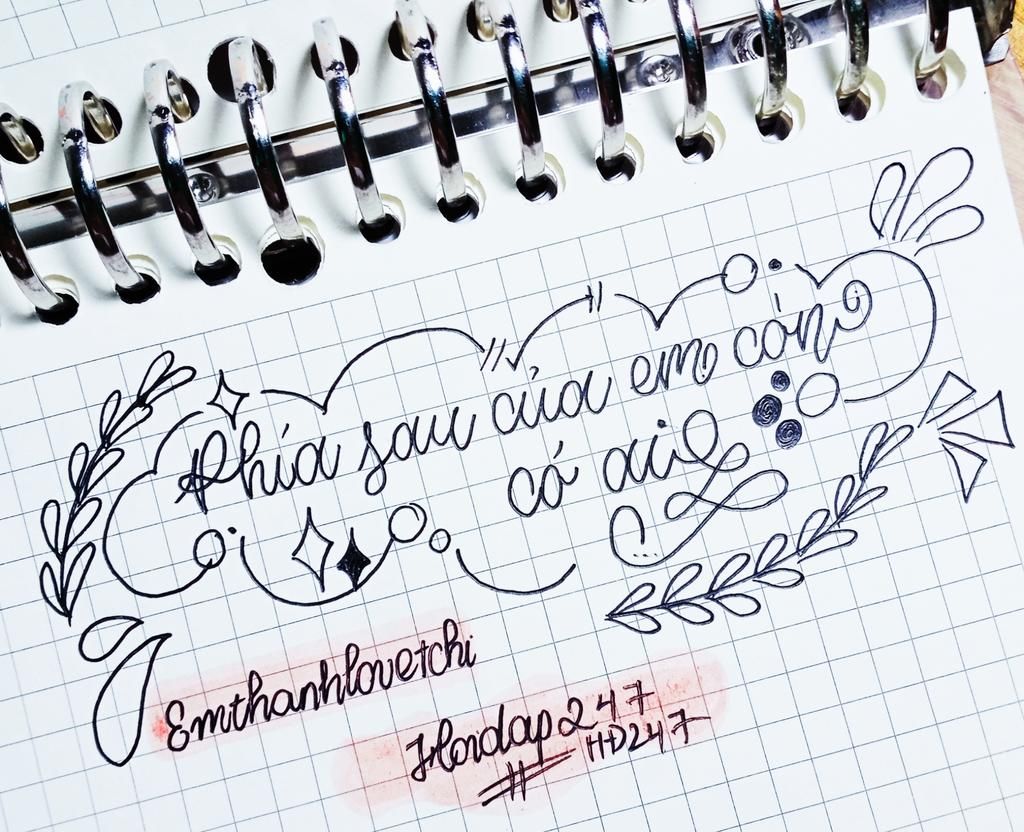 Phía sau của em còn
có ai
Emthanhlovetchi
Hoidap247
HD247